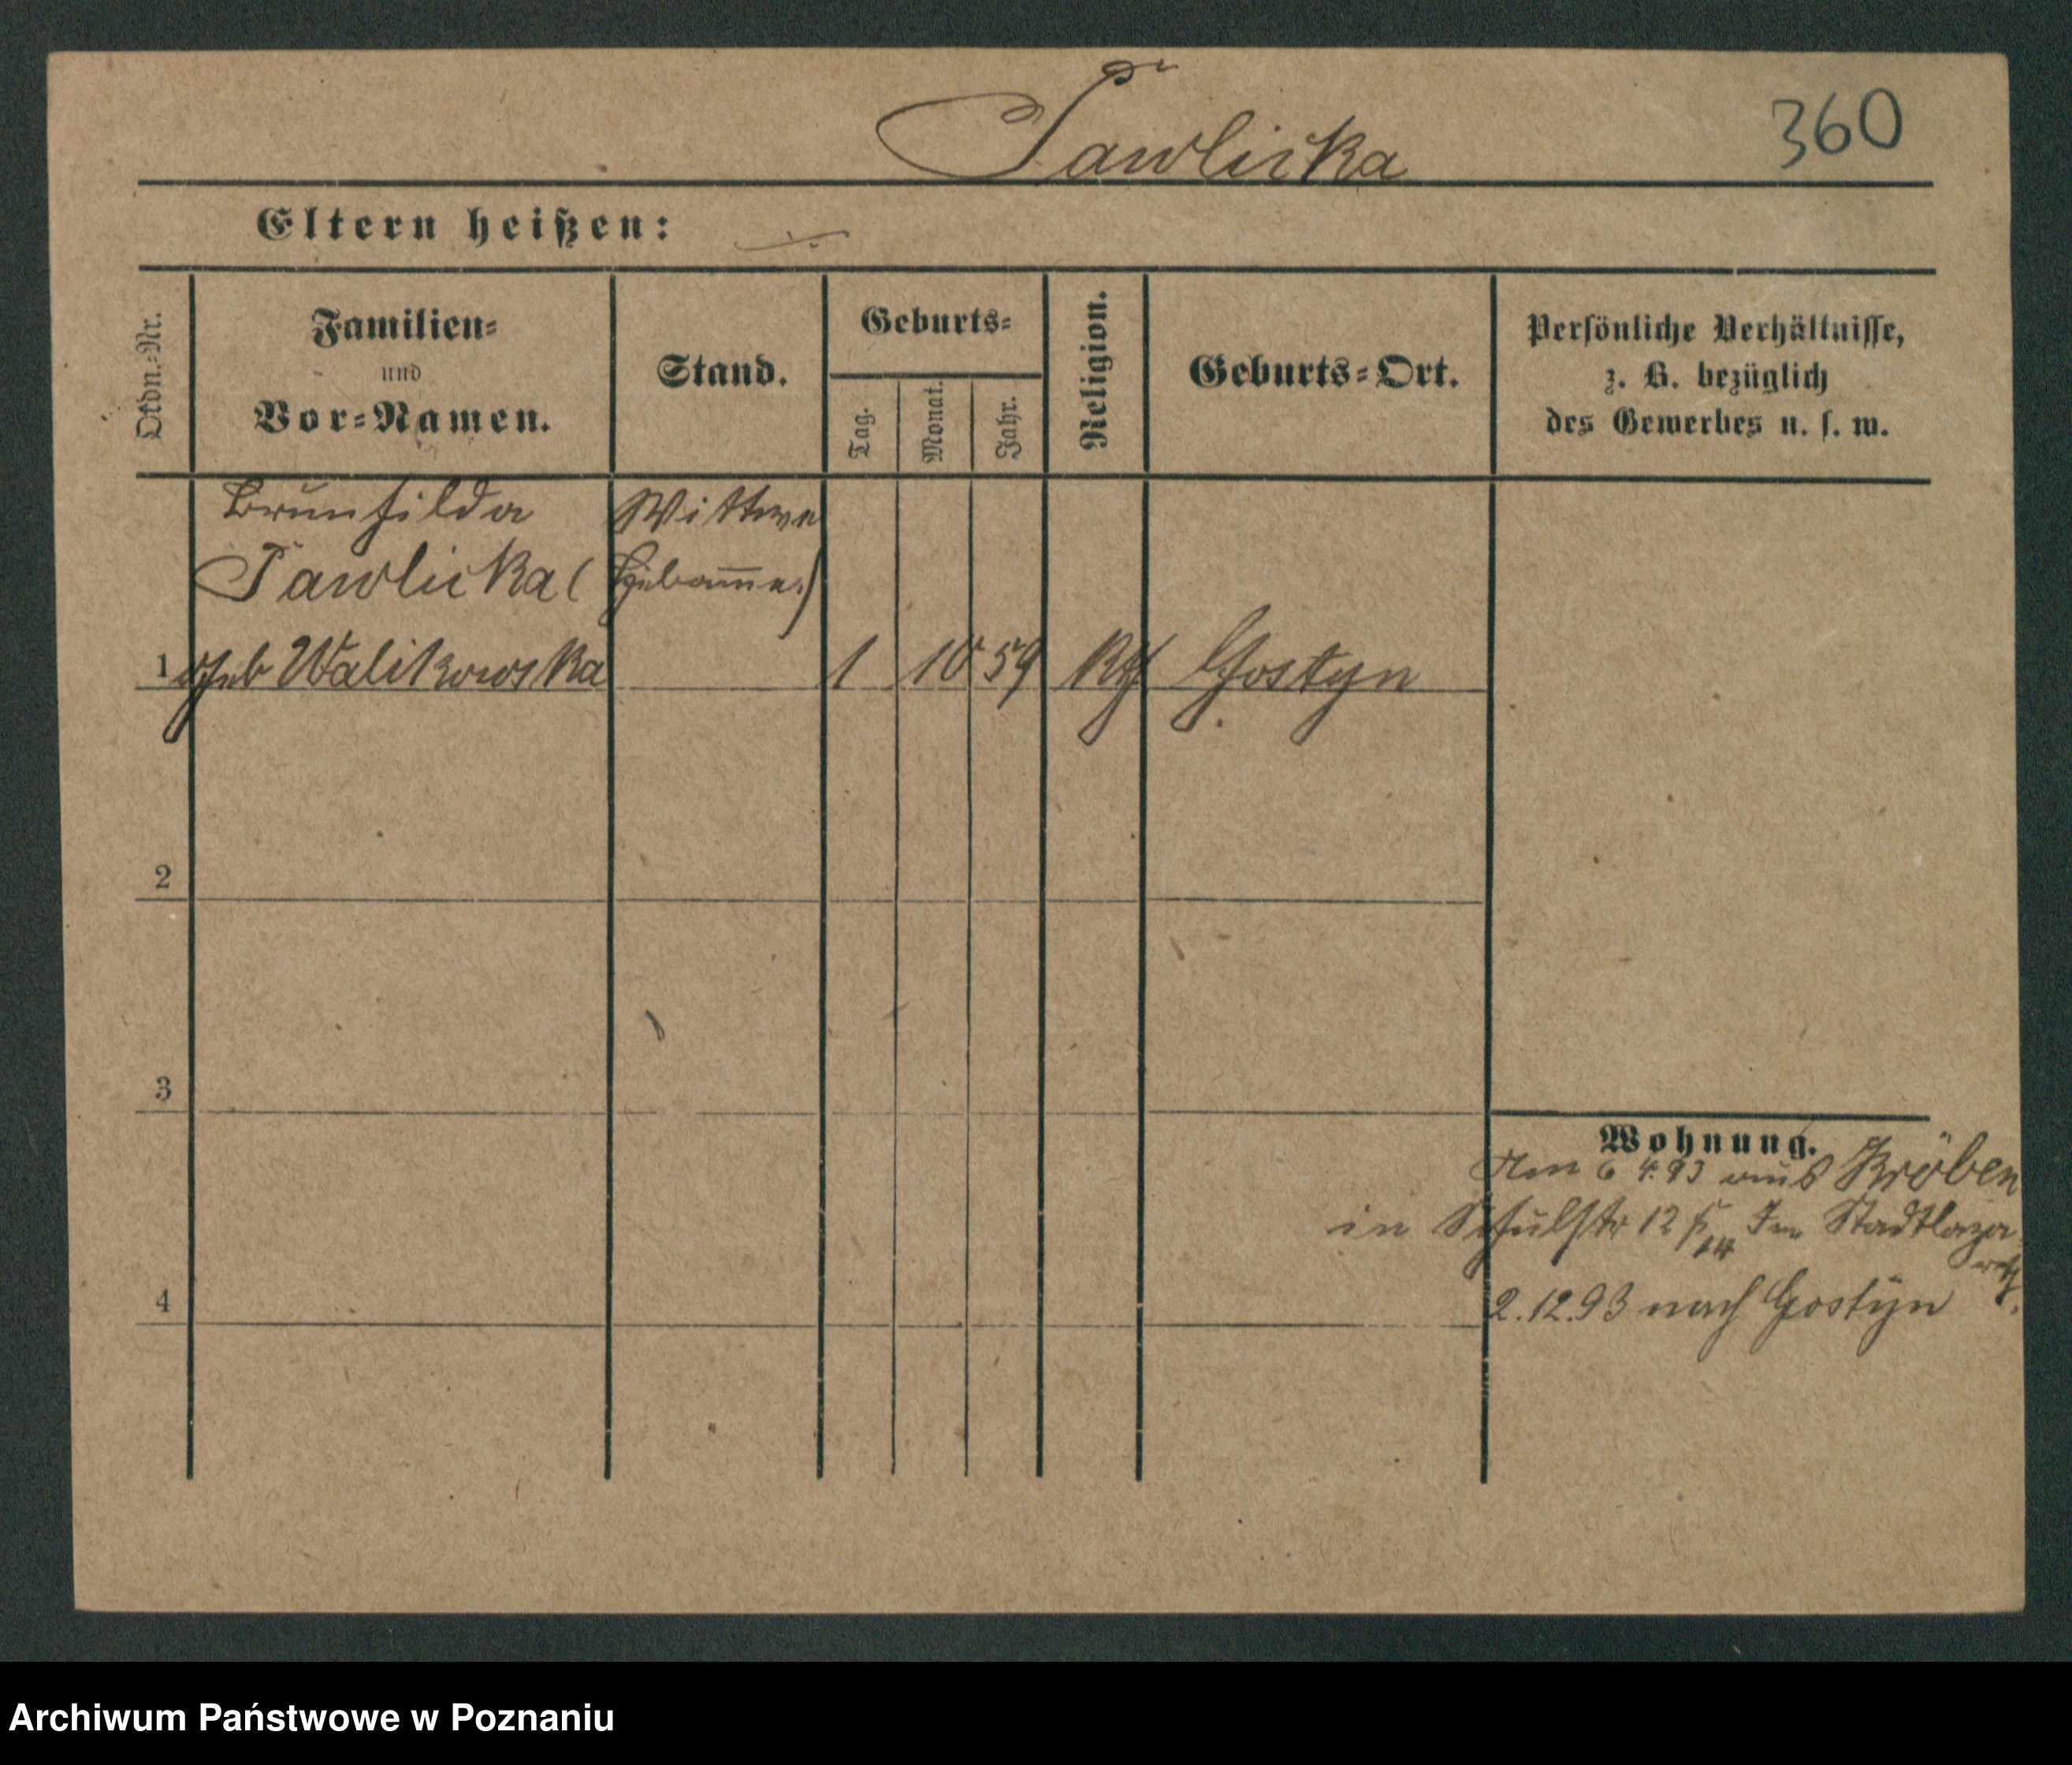 Pawlicka
360
Eltern heißen: ./.
Ordn.-Nr.
Familien-
und
Vor-Namen.
Stand.
Geburts-
Tag.
Monat.
Jahr.
Religion.
Geburts-Ort.
Persönliche Verhältnisse,
z. B. bezüglich
des Gewerbes u. s. w.
Brunhilda Wittwe
Pawlicka (Hebamme.)
1 geb Walikowska 1 10 59 Kth Gostyn
2
3
Wohnung.
Am 6 4.93 aus Kröben
in Schulstr 12 Im Stadtlaza
reth.
4
2.12.93 nach Gostyn
Archiwum Państwowe w Poznaniu